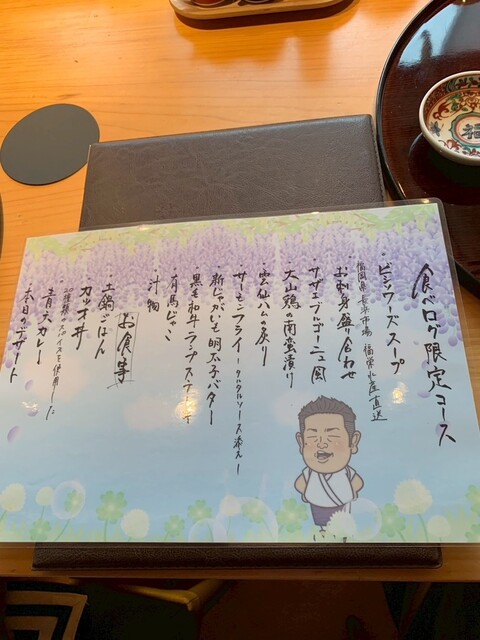 食べログ限定コース
ビシソワーズスープ
福岡県長浜市場 福栄水産直送
お刺身盛り合わせ
サザエブルゴーニュ風
大山鶏の南蛮漬け
雲仙ハムの炙り
サーモンフライ ータルタルソース添えー
新じゃがいも明太子バター
黒毛和牛ランプステーキ
有馬じゃこ
汁物
お食事
土鍋ごはん
カツオ丼
20種類のスパイスを使用した
青六カレー
本日のデザート
福